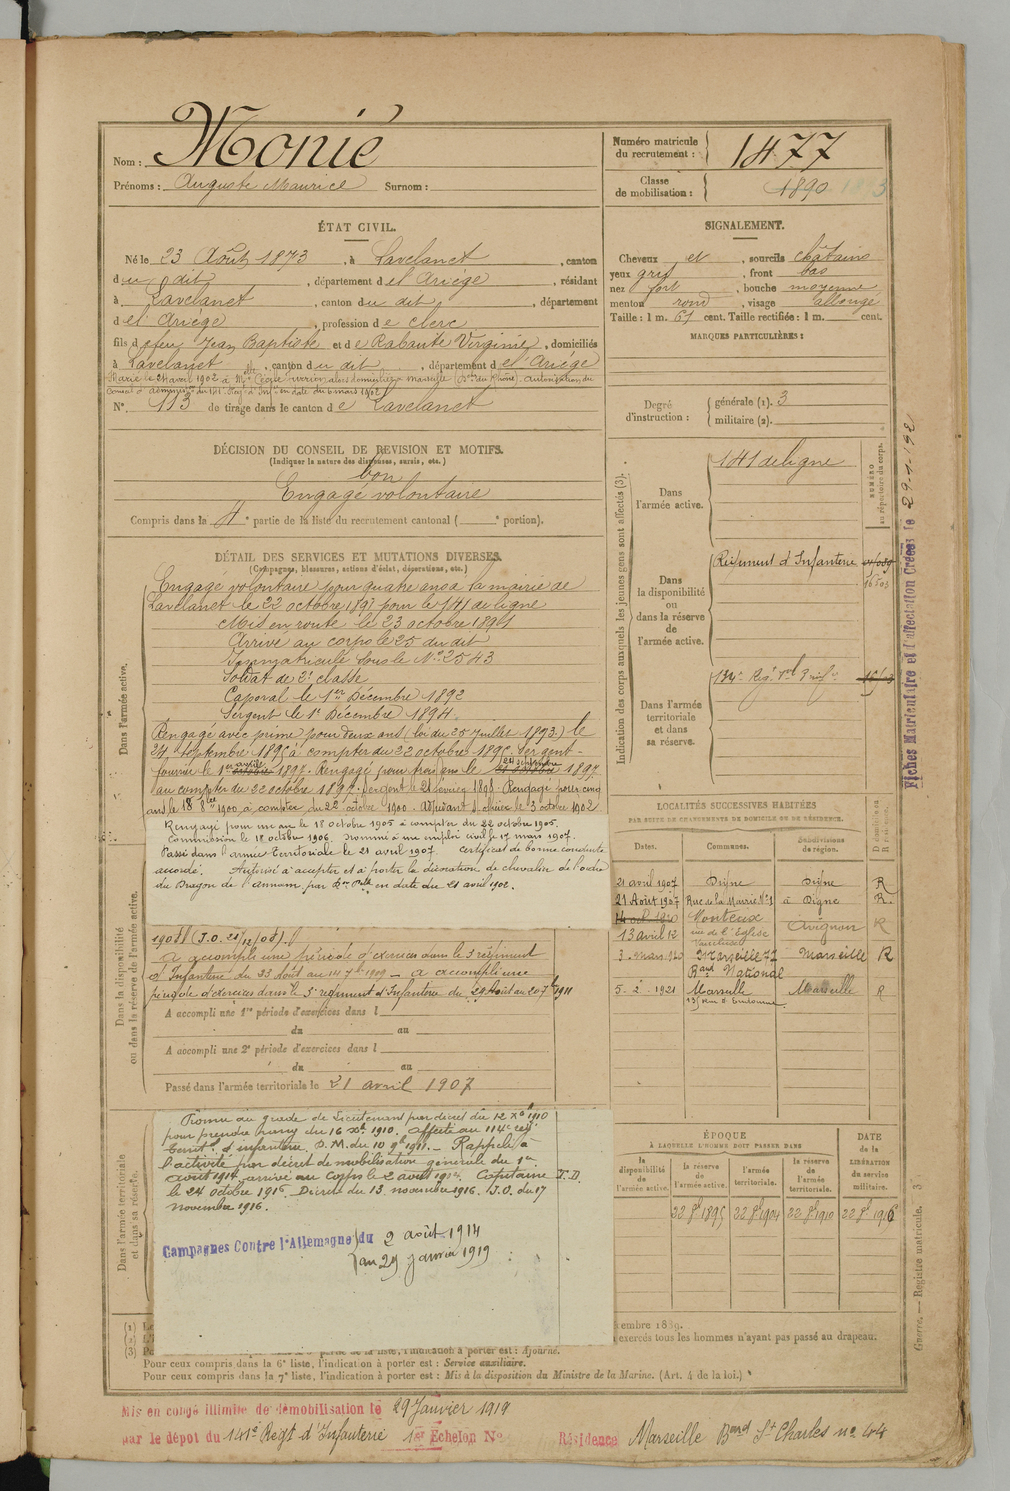 Nom : Monié
Prénoms : Auguste Maurice Surnom :
Numéro matricule du recrutement : 1477
Classe de mobilisation : 1890
ÉTAT CIVIL.
Né le 23 Août 1873, à Lavelanet, canton
du dit, département de l'Ariège, résidant
à Lavelanet, canton du dit, département
de l'Ariège, profession de clerc
fils de feu Jean Baptiste et de Rabaute Virginie, domiciliés
à Lavelanet, canton du dit, département de l'Ariège
Marié le 24 avril 1902 à Mlle
N° 113 de tirage dans le canton de Lavelanet
SIGNALEMENT.
Cheveux et, sourcils châtains
yeux gris, front bas
nez fort, bouche moyenne
menton rond, visage allongé
Taille : 1 m. 61 cent. Taille rectifiée : 1 m. cent.
MARQUES PARTICULIÈRES :
Degré d'instruction : générale (1). 3
militaire (2).
DÉCISION DU CONSEIL DE REVISION ET MOTIFS.
(Indiquer la nature des dispenses, sursis, etc.)
bon
Engagé volontaire
Compris dans la 4e partie de la liste du recrutement cantonal ( e portion).
DÉTAIL DES SERVICES ET MUTATIONS DIVERSES.
(Campagnes, blessures, actions d'éclat, décorations, etc.)
Dans l'armée active.
Engagé volontaire pour quatre ans à la mairie de
Lavelanet le 22 octobre 1891 pour le 141 de ligne
Mis en route le 23 octobre 1891
Arrivé au corps le 25 du dit
Immatriculé sous le N° 2543
Soldat de 2e classe
Caporal le 1er Décembre 1892
Sergent le 1er Décembre 1894.
Rengagé avec prime pour deux ans (loi du 25 juillet 1893) le
24 septembre 1895 à compter du 22 octobre 1895. Sergent-
fourrier le 1er avril 1897. Rengagé pour trois ans le 24 septembre 1897
au compter du 22 octobre 1897. Sergent le 21 février 1898. Rengagé pour cinq
ans le 18 8bre 1900 à compter du 22 octobre 1900. Adjudant le 3 octobre 1902
Rengagé pour un an le 18 octobre 1905 à compter du 22 octobre 1905.
Commissionné le 18 octobre 1906. Nommé à un emploi civil le 17 mars 1907.
Passé dans l'armée Territoriale le 21 avril 1907. Certificat de bonne conduite
accordé. Autorisé à accepter et à porter la décoration de chevalier de l'ordre
du Dragon de l'Annam par en date du 21 avril 1902.
Dans la disponibilité ou dans la réserve de l'armée active.
1908 (J.O. 21/12/08).
A accompli une période d'exercices dans le 3 régiment
d'Infanterie du 23 Août au 14 7bre 1909 — A accompli une
période d'exercices dans le 3e régiment d'Infanterie du 29 Août au 20 7bre 1911
A accompli une 1re période d'exercices dans l
du au
A accompli une 2e période d'exercices dans l
du au
Passé dans l'armée territoriale le 21 avril 1907
Dans l'armée territoriale et dans sa réserve.
Promu au grade de Lieutenant par décret du 12 Xbre 1910
pour prendre rang du 16 Xbre 1910. Affecté au 114e régt
territ. d'infanterie. D.M. du 10 9bre 1911. — Rappelé à
l'activité par décret de mobilisation générale du 1er
août 1914 arrivé au corps le 2 août 1914. Capitaine T.D.
le 24 octobre 1916. Décret du 13 novembre 1916. J.O. du 17
novembre 1916.
Campagnes Contre l'Allemagne du 2 août 1914
au 29 janvier 1919
Indication des corps auxquels les jeunes gens sont affectés (3).
Dans l'armée active.
141 de ligne
NUMÉRO au répertoire du corps.
Dans la disponibilité ou dans la réserve de l'armée active.
Régiment d'Infanterie
Dans l'armée territoriale et dans sa réserve.
Fiches Matriculaire et d'affectation Créées le 29-1-192
LOCALITÉS SUCCESSIVES HABITÉES
PAR SUITE DE CHANGEMENTS DE DOMICILE OU DE RÉSIDENCE.
Dates. Communes. Subdivisions de région. Domicile ou Résidence.
21 avril 1907 Digne Digne R
21 Août 1907 Rue de la Mairie N°1 à Digne R.
14 oct. 1910 Monteux Avignon R
13 avril 12 rue de l'Église
Vaucluse
3 Mars 1920 Marseille 77 Marseille R
Bard National
5-2-1921 Marseille Marseille R
ÉPOQUE
À LAQUELLE L'HOMME DOIT PASSER DANS
la disponibilité de l'armée active. la réserve de l'armée active. l'armée territoriale. la réserve de l'armée territoriale.
DATE de la LIBÉRATION du service militaire.
22 8bre 1895 22 8bre 1904 22 8bre 1910 22 8bre 1916
(1)
(2)
(3)
cembre 1889.
exercés tous les hommes n'ayant pas passé au drapeau.
partie de la liste, l'indication à porter est : Ajourné.
Pour ceux compris dans la 6e liste, l'indication à porter est : Service auxiliaire.
Pour ceux compris dans la 7e liste, l'indication à porter est : Mis à la disposition du Ministre de la Marine. (Art. 4 de la loi.)
Guerre. — Registre matricule. 3
Mis en congé illimité de démobilisation le 29 Janvier 1919
par le dépôt du 141e Régt d'Infanterie 1er Echelon N°
Résidence Marseille Bard St Charles no 44